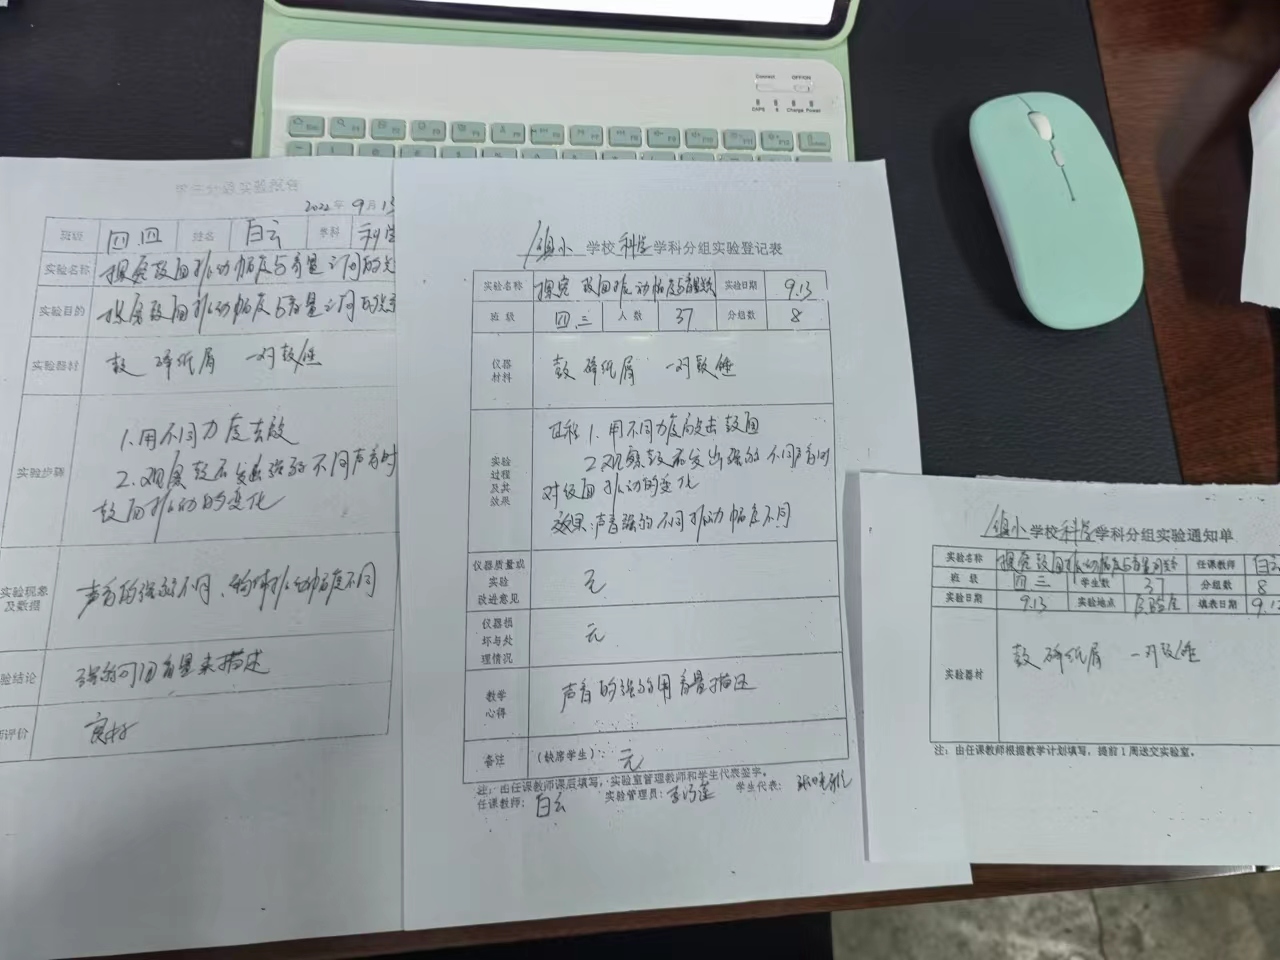 Connect OFF/ON
CAPS Charge Power
学生分组实验报告
2022年9月13
班级 四.四 姓名 白云 学科 科学
实验名称 探究鼓面振动幅度与音量之间的关
实验目的 探究鼓面振动幅度与音量之间的关系
实验器材 鼓 碎纸屑 一对鼓锤
实验步骤
1.用不同力度去敲
2.观察鼓在发出强弱不同声音时
鼓面振动的变化
实验现象
及数据
声音的强弱不同、物体振动幅度不同
验结论 强弱可用音量来描述
评价 良好
镇小学校科学学科分组实验登记表
实验名称 探究鼓面振动幅度与音量关 实验日期 9.13
班级 四.三 人数 37 分组数 8
仪器
材料
鼓 碎纸屑 一对鼓锤
实验
过程
及其
效果
过程 1.用不同力度敲击鼓面
2.观察鼓在发出强弱不同声音时
鼓面振动的变化
效果:声音强弱不同振动幅度不同
仪器质量或
实验
改进意见
无
仪器损
坏与处
理情况
无
教学
心得
声音的强弱用音量描述
备注 (缺席学生): 无
注:由任课教师课后填写,实验室管理教师和学生代表签字。
任课教师: 白云 实验管理员: 学生代表:
镇小学校科学学科分组实验通知单
实验名称 探究鼓面振动幅度与音量 任课教师 白云
班级 四三 学生数 37 分组数 8
实验日期 9.13 实验地点 实验室 填表日期 9.1
实验器材 鼓 碎纸屑 一对鼓锤
注:由任课教师根据教学计划填写,提前1周送交实验室。